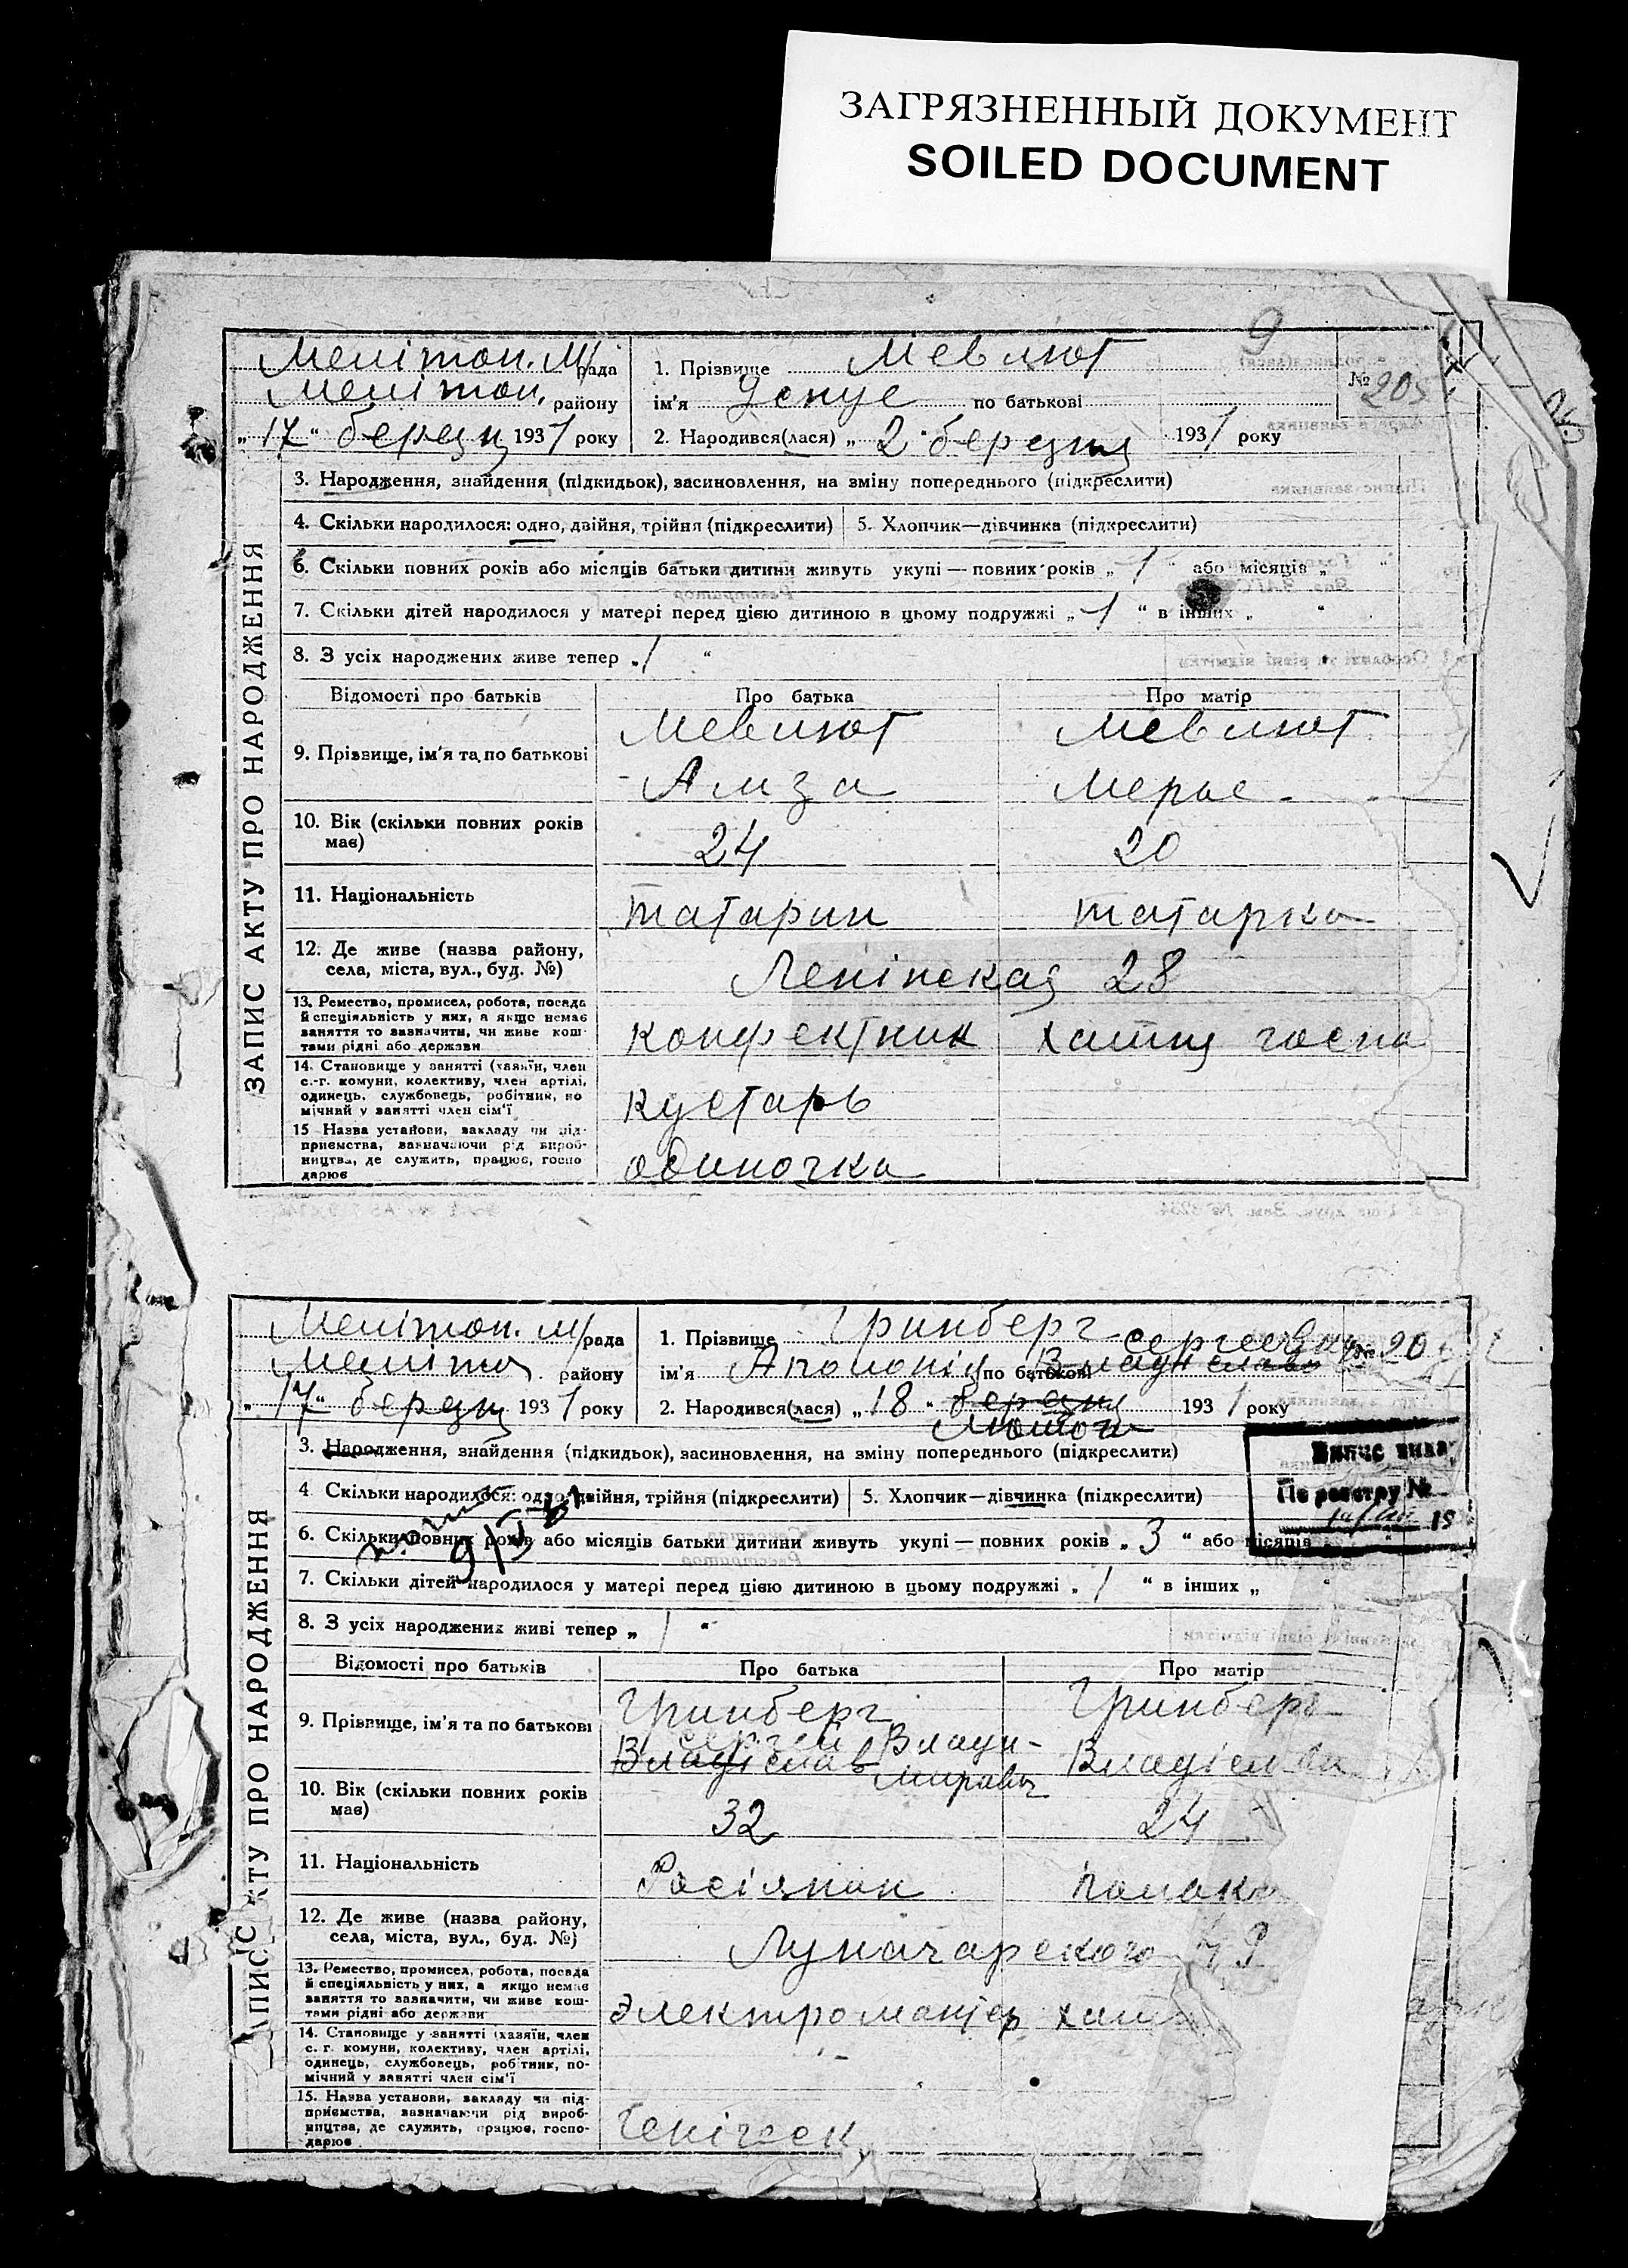 ЗАГРЯЗНЕННЫЙ ДОКУМЕНТ
SOILED DOCUMENT
9
Мелітоп. М/рада
Мелітоп. району
„17“ березн 1931 року
1. Прізвище Мевлют
ім'я по батькові
№ 205
2. Народився(лася) „2“ березня 1931 року
ЗАПИС АКТУ ПРО НАРОДЖЕННЯ
3. Народження, знайдення (підкидьок), засиновлення, на зміну попереднього (підкреслити)
4. Скільки народилося: одно, двійня, трійня (підкреслити) 5. Хлопчик—дівчинка (підкреслити)
6. Скільки повних років або місяців батьки дитини живуть укупі — повних років „1“ або місяців „ “
7. Скільки дітей народилося у матері перед цією дитиною в цьому подружжі „1“ в інших „ “
8. З усіх народжених живе тепер „1“
Відомості про батьків Про батька Про матір
9. Прізвище, ім'я та по батькові
Мевлют Мевлют
Амза Мерье
10. Вік (скільки повних років має)
24 20
11. Національність
татарин татарка
12. Де живе (назва району,
села, міста, вул., буд. №)
Ленінская 28
13. Ремество, промисел, робота, посада
й спеціяльність у них, а якщо немає
заняття то зазначити, чи живе кош-
тами рідні або держави
конфектник хатня госпо
14. Становище у занятті (хазяїн, член
с.-г. комуни, колективу, член артілі,
одинець, службовець, робітник, по
мічний у занятті член сім'ї
кустарь
15 Назва установи, закладу чи під-
приємства, зазначаючи рід вироб-
ництва, де служить, працює, госпо
дарює
одиночка
Мелітоп. м/рада
Меліто району
„17“ березн 1931 року
1. Прізвище Гринберг
Сергеевна
ім'я Аполонія по батькові Владіславо
№ 20
2. Народився(лася) „18“ березня 1931 року
Лютого
ЗАПИС АКТУ ПРО НАРОДЖЕННЯ
3. Народження, знайдення (підкидьок), засиновлення, на зміну попереднього (підкреслити)
Випис вида
По реестру №
19
4 Скільки народилося: одно, двійня, трійня (підкреслити) 5. Хлопчик—дівчинка (підкреслити)
6. Скільки повних років або місяців батьки дитини живуть укупі — повних років „3“ або місяців
7. Скільки дітей народилося у матері перед цією дитиною в цьому подружжі „1“ в інших „ “
8. З усіх народжених живі тепер „1“
Відомості про батьків Про батька Про матір
9. Прізвище, ім'я та по батькові
Гринберг Гринберг
Сергей Влади-
Владіслав Владісл
мирович
10. Вік (скільки повних років
має)
32 24
11. Національність
Росіянин полька
12. Де живе (назва району,
села, міста, вул., буд. №)
Луначарского
13. Ремество, промисел, робота, посада
й спеціяльність у них, а якщо немає
заняття то зазначити, чи живе кош-
тами рідні або держави
Электромантер хат
14. Становище у занятті (хазяїн, член
с. г. комуни, колективу, член артілі,
одинець, службовець, робітник, по-
мічний у занятті член сім'ї
15. Назва установи, закладу чи під-
приємства, зазначаючи рід вироб-
ництва, де служить, працює, госпо-
дарює
Генічеек